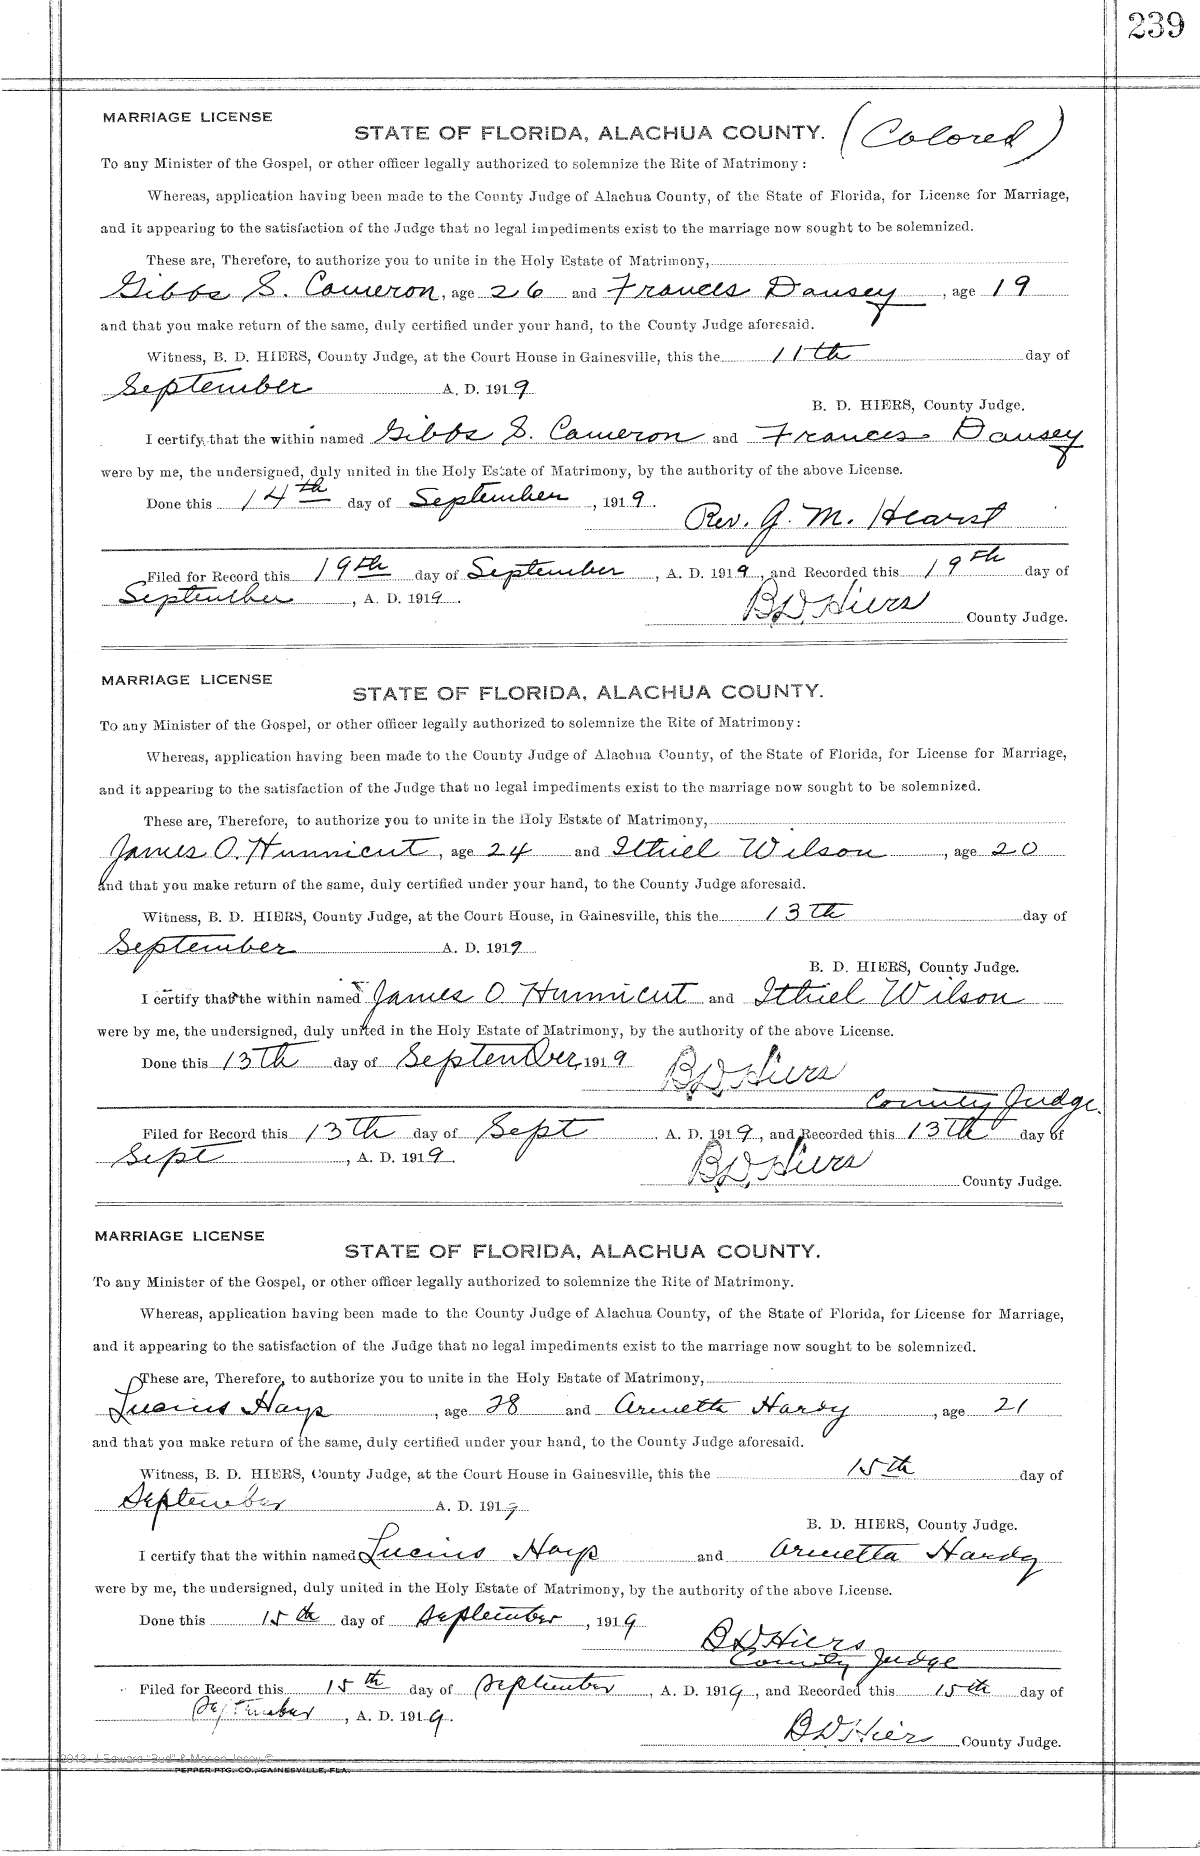 239
MARRIAGE LICENSE
STATE OF FLORIDA, ALACHUA COUNTY. (Colored)
To any Minister of the Gospel, or other officer legally authorized to solemnize the Rite of Matrimony:
Whereas, application having been made to the County Judge of Alachua County, of the State of Florida, for License for Marriage,
and it appearing to the satisfaction of the Judge that no legal impediments exist to the marriage now sought to be solemnized.
These are, Therefore, to authorize you to unite in the Holy Estate of Matrimony,
Gibbs S. Cameron, age 26 and Frances Dausey, age 19
and that you make return of the same, duly certified under your hand, to the County Judge aforesaid.
Witness, B. D. HIERS, County Judge, at the Court House in Gainesville, this the 11th day of
September A. D. 1919
B. D. HIERS, County Judge.
I certify that the within named Gibbs S. Cameron and Frances Dausey
were by me, the undersigned, duly united in the Holy Estate of Matrimony, by the authority of the above License.
Done this 14th day of September, 1919.
Rev. G. M. Hearst
Filed for Record this 19th day of September, A. D. 1919, and Recorded this 19th day of
September, A. D. 1919.
B D Hiers County Judge.
MARRIAGE LICENSE
STATE OF FLORIDA, ALACHUA COUNTY.
To any Minister of the Gospel, or other officer legally authorized to solemnize the Rite of Matrimony:
Whereas, application having been made to the County Judge of Alachua County, of the State of Florida, for License for Marriage,
and it appearing to the satisfaction of the Judge that no legal impediments exist to the marriage now sought to be solemnized.
These are, Therefore, to authorize you to unite in the Holy Estate of Matrimony,
James O. Hunnicut, age 24 and Ithiel Wilson, age 20
and that you make return of the same, duly certified under your hand, to the County Judge aforesaid.
Witness, B. D. HIERS, County Judge, at the Court House, in Gainesville, this the 13th day of
September A. D. 1919
B. D. HIERS, County Judge.
I certify that the within named James O Hunnicut and Ithiel Wilson
were by me, the undersigned, duly united in the Holy Estate of Matrimony, by the authority of the above License.
Done this 13th day of September, 1919
B D Hiers
County Judge.
Filed for Record this 13th day of Sept A. D. 1919, and Recorded this 13th day of
Sept, A. D. 1919.
B D Hiers County Judge.
MARRIAGE LICENSE
STATE OF FLORIDA, ALACHUA COUNTY.
To any Minister of the Gospel, or other officer legally authorized to solemnize the Rite of Matrimony.
Whereas, application having been made to the County Judge of Alachua County, of the State of Florida, for License for Marriage,
and it appearing to the satisfaction of the Judge that no legal impediments exist to the marriage now sought to be solemnized.
These are, Therefore, to authorize you to unite in the Holy Estate of Matrimony,
Lucius Hays, age 28 and Armetta Hardy, age 21
and that you make return of the same, duly certified under your hand, to the County Judge aforesaid.
Witness, B. D. HIERS, County Judge, at the Court House in Gainesville, this the 15th day of
September A. D. 1919
B. D. HIERS, County Judge.
I certify that the within named Lucius Hays and Armetta Hardy
were by me, the undersigned, duly united in the Holy Estate of Matrimony, by the authority of the above License.
Done this 15th day of September, 1919
B D Hiers
County Judge
Filed for Record this 15th day of September, A. D. 1919, and Recorded this 15th day of
September, A. D. 1919.
B D Hiers County Judge.
PEPPER PTG. CO., GAINESVILLE, FLA.